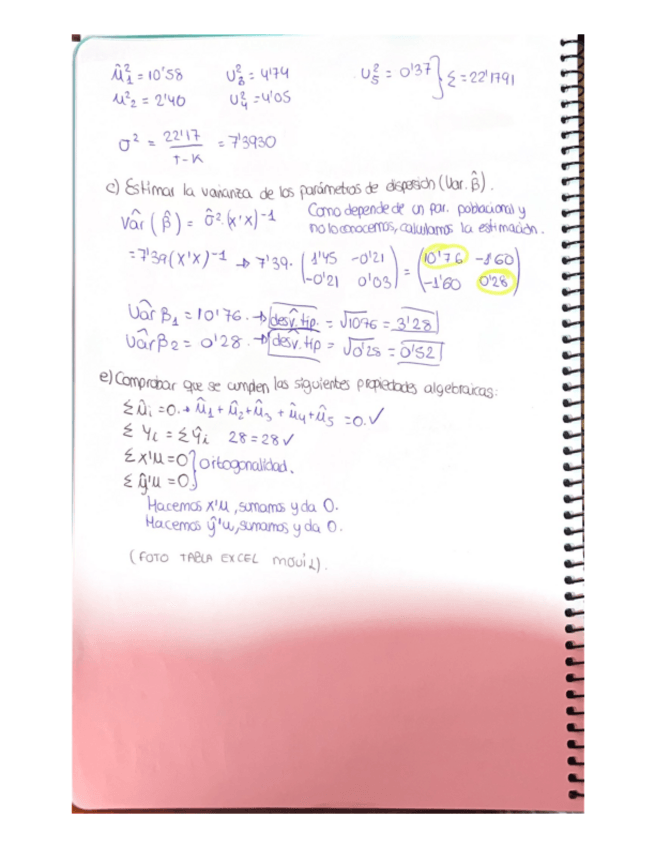 û²₁ = 10'58 U²₃ = 4'74 U²₅ = 0'37 } Σ = 22'1791
u²₂ = 2'40 U²₄ = 4'05
σ² = 22'17 / T-K = 7'3930
c) Estimar la varianza de los parámetros de dispersión (Var. β̂).
Vâr (β̂) = σ̂² · (x'x)⁻¹ Como depende de un par. poblacional y
no lo conocemos, calculamos la estimación.
= 7'39 (x'x)⁻¹ → 7'39 · ( 1'45 -0'21 ) = ( 10'76 -1'60 )
( -0'21 0'03 ) ( -1'60 0'28 )
Vâr β₁ = 10'76. → desv. tip. = √10'76 = 3'28
Vâr β₂ = 0'28. → desv. tip = √0'28 = 0'52
e) Comprobar que se cumplen las siguientes propiedades algebraicas:
Σ ûi = 0. → û₁ + û₂ + û₃ + û₄ + û₅ = 0. ✓
Σ Yi = Σ ŷi 28 = 28 ✓
Σ x'u = 0 } Ortogonalidad.
Σ ŷ'u = 0 }
Hacemos x'u, sumamos y da 0.
Hacemos ŷ'u, sumamos y da 0.
(FOTO TABLA EXCEL MÓVIL).